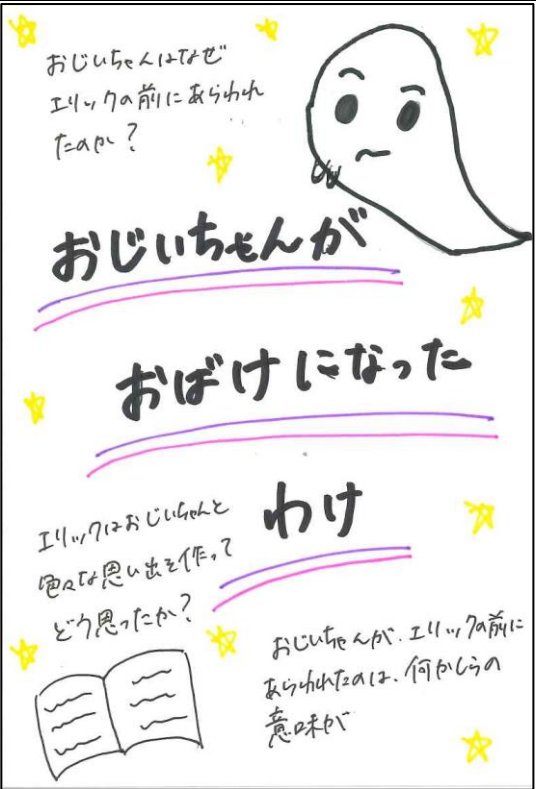 おじいちゃんはなぜ
エリックの前にあらわれ
たのか?
おじいちゃんが
おばけになった
わけ
エリックはおじいちゃんと
色々な思い出を作って
どう思ったか?
おじいちゃんが、エリックの前に
あらわれたのは、何かしらの
意味が